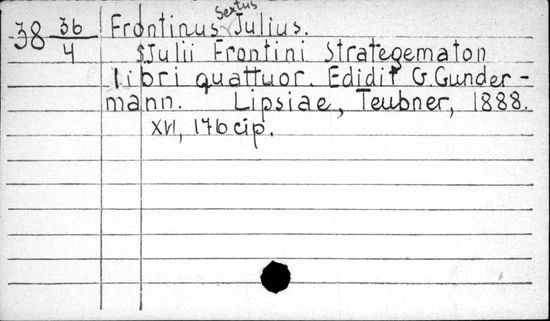 38 36/4 Frontinus Sextus Julius.
SJulii Frontini Strategematon
libri quattuor. Edidit G. Gunder-
mann. Lipsiae, Teubner, 1888.
XVI, 176 cip.